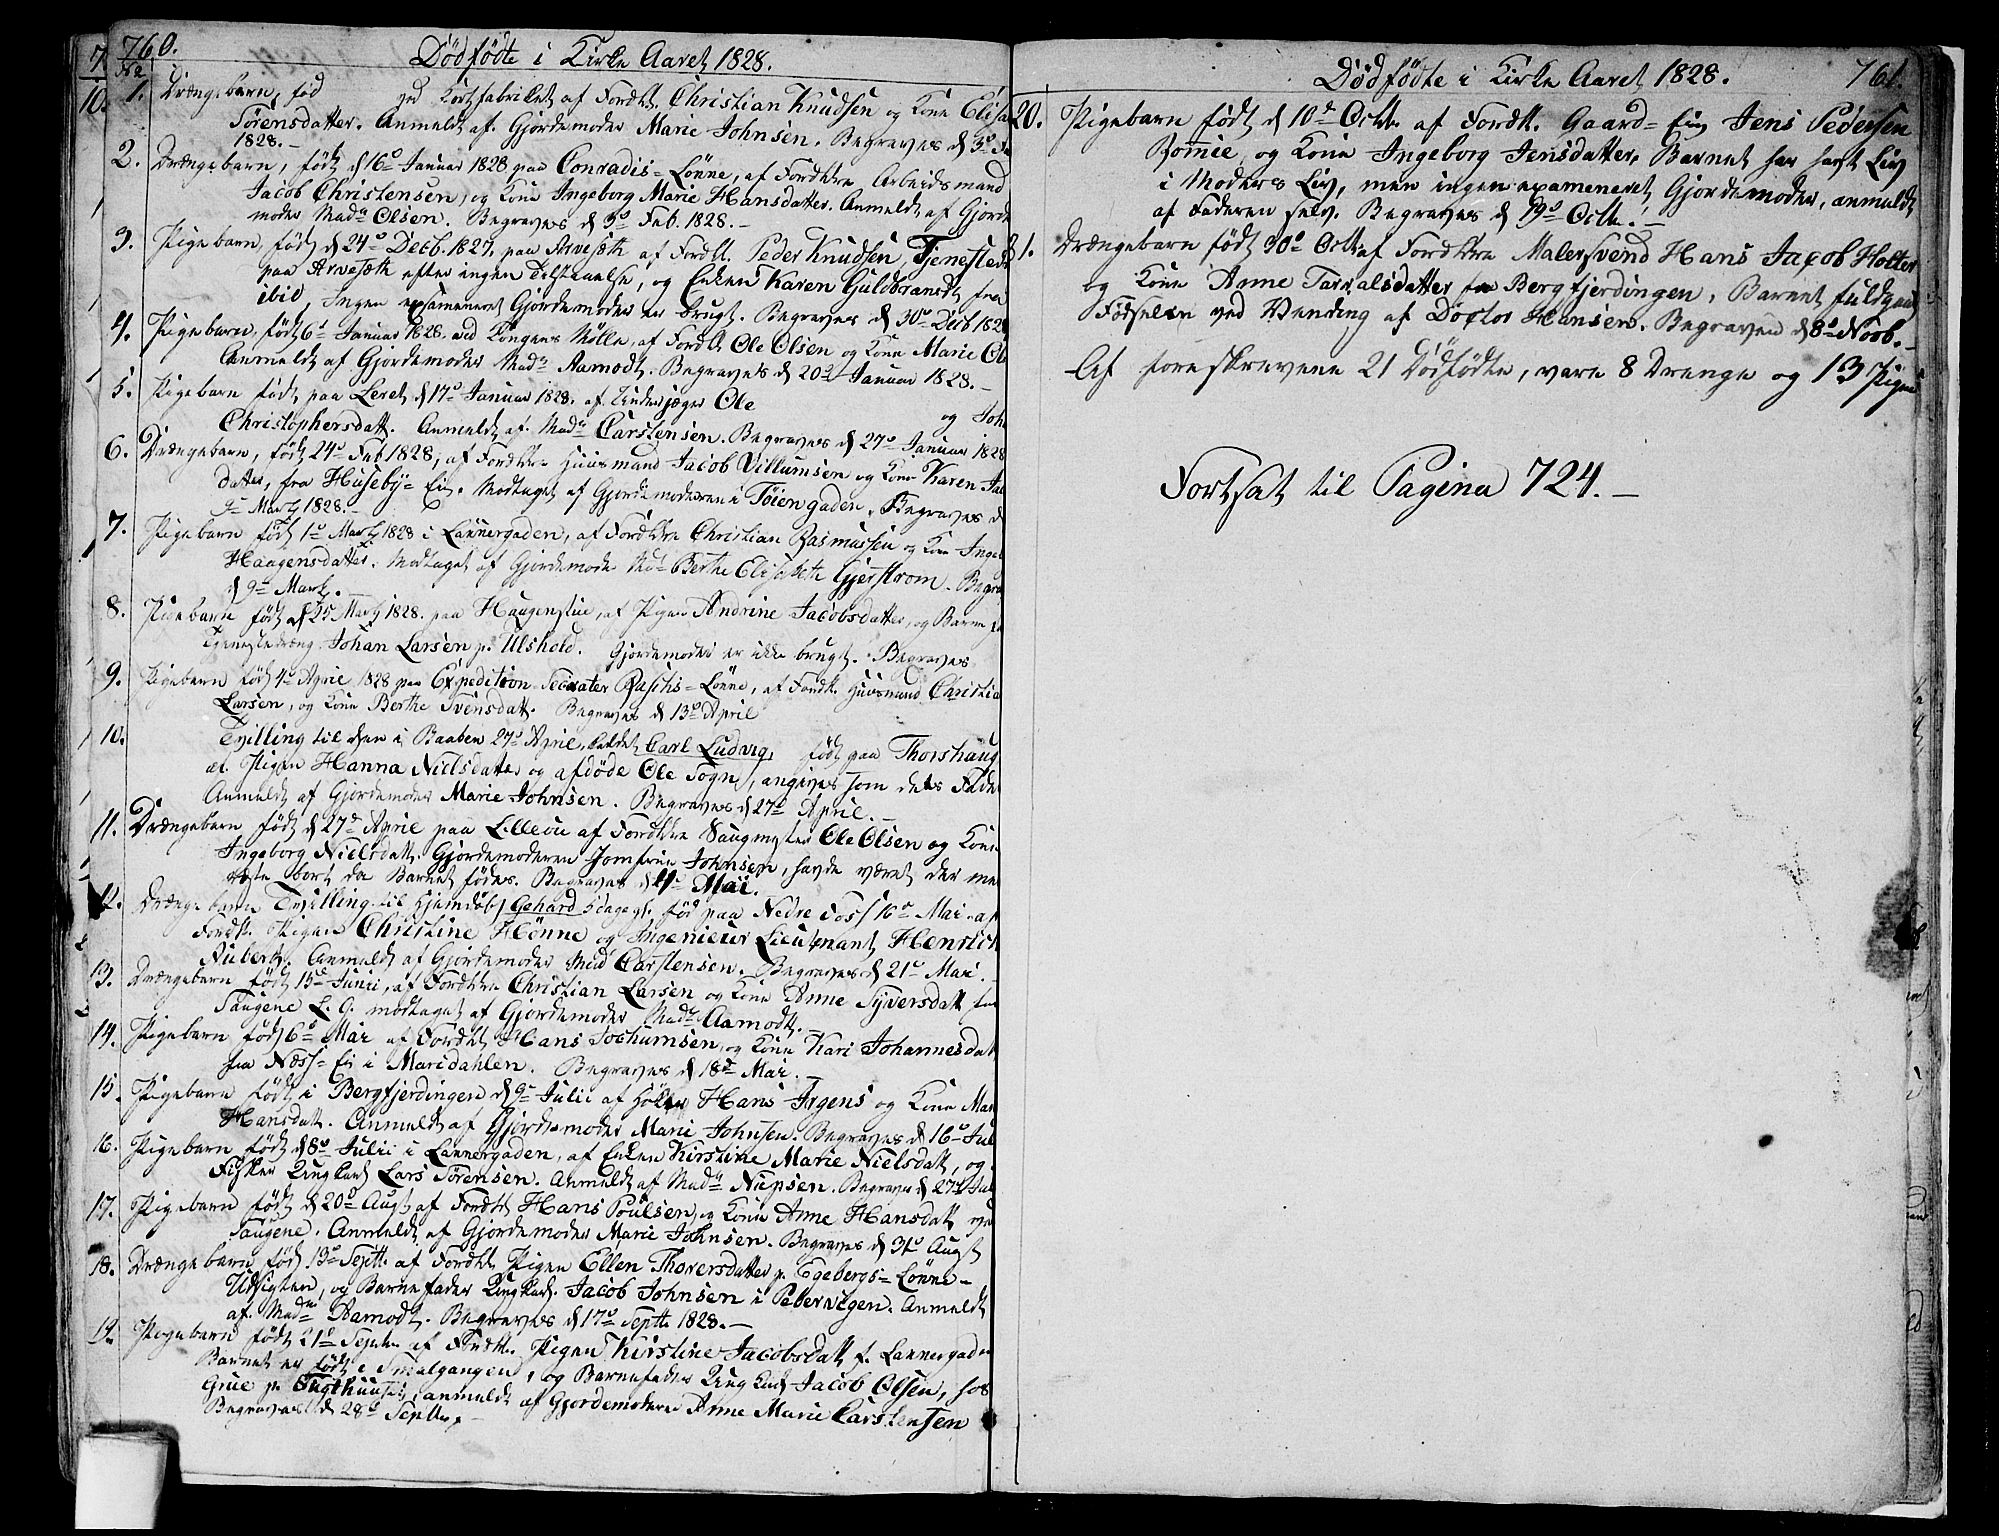 760.
Dödfödte i Kirke Aaret 1828.
No
1. Drængebarn, fød ved Kortfabriket af Forældr. Christian Knudsen og Kone Elisa
Sörensdatter. Anmeldt af Gjordemoder Marie Johnsen. Begraves d 3d
1828.-
2. Drængebarn, födt d 16d Januar 1828 paa Conradis=Lönne, af Forældre Arbeidsmand
Jacob Christensen, og Kone Ingeborg Marie Hansdatter. Anmeldt af Gjorde
moder Madm Olsen. Begraves d 3d Feb. 1828.-
3. Pigebarn, födt d 24d Decb. 1827, paa Arvesæth af Forældr. Peder Knudsen, Tjenestedr
paa Arvesæth efter ingen Tilstaaelse, og Enken Karen Guldbransdt fra
ibid, Ingen examineret Gjordemoder er brugt. Begraves d 30d Decb 1828
4. Pigebarn, födt 6d Januar 1828. ved Kongens Mölle, af Forældr Ole Olsen og Kone Marie Ol
Anmeldt af Gjordemoder Madm Aamodt. Begraves d 20d Januar 1828.-
5. Pigebarn födt paa Leret d 17d Januar 1828. af Underjæger Ole og Joh
Christophersdatt. Anmeldt af Madm Carstensen. Begraves d 27d Januar 1828
6. Drængebarn, födt 24d Feb 1828, af Forældre Huusmand Jacob Villumsen og Kone Karen Ja
datter, fra Huseby=Eie. Modtaget af Gjordemoderen i Töiengaden. Begraves d
9d Marty 1828.-
7. Pigebarn födt 1d Marty 1828 i Lannergaden, af Forældre Christian Rasmussen og Kone Inge
Haagensdatter. Modtaget af Gjordemoder Berthe Elisabeth Gjerstrom. Begra
d 9d Marty.
8. Pigebarn födt d 25 Marty 1828. paa Haugenstue, af Pigen Andrine Jacobsdatter, og Barnef
Tjenestedræng Johan Larsen p. Ulshold. Gjordemoder er ikke brugt. Begraves
9. Pigebarn födt 4d April 1828 paa Expedition-Secreater Raschs=Lönne, af Forældr. Huusmand Christia
Larsen, og Kone Berthe Svensdatt. Begraves d 13d April
10. Tvilling til den i Daaben 27d April, kaldet Carl Ludvig, födt paa Thorshaug
af Pigen Hanna Nielsdatter og afdöde Ole Sogn, angives som dets Fader
Anmeldt af Gjordemoder Marie Johnsen. Begraves d 27d April.-
11. Drængebarn födt d 27d April paa Lilleöu af Forældre Saugmester Ole Olsen og Kone
Ingeborg Nielsdatt. Gjordemoderen Jomfrue Johnsen, havde været der men
reiste bort da Barnet födes. Begraves d 4d Mai.
12. Drængebarn Tvilling til hjemdöbt Gehard 5 dage gl. föd paa Nedre Foss 16d Mai af
Forældr. Pigen Christine Hönne og Ingenieur Lieutenant Henrich
Aubert. Anmeldt af Gjordemoder Mad Carstensen. Begraves d 21d Mai.
13. Drængebarn födt 15d Junii, af Forældre Christian Larsen og Kone Anne Syversdatt
Saugene L. G. modtaget af Gjordemoder Madm Aamodt.-
14. Pigebarn födt 6d Mai af Forældr Hans Jochumsen, og Kone Kari Johannesdat
fra Næss=Ei i Maridahlen. Begraves d 18d Mai.-
15. Pigebarn födt i Bergfjerdingen d 9d Julii af Höker Hans Irgens og Kone Mar
Hansdatt. Anmeldt af Gjordemoder Marie Johnsen. Begraves d 16d Jul
16. Pigebarn födt d 8d Julii i Lannergaden, af Enken Kirstine Marie Nielsdatt, og
Fisker Ungkarl Lars Sörensen. Anmeldt af Madm Nupsen. Begraves d 27d Jul
17. Pigebarn födt d 20d Aust af Forældr Hans Poulsen, og Kone Anne Hansdatt ved
Saugene. Anmeldt af Gjordemoder Marie Johnsen. Begraves d 31d Aust
18. Drængebarn född 13d Septb. af Forældr Pigen Ellen Thorersdatter p. Egebergs=Lönne-
Udsigten, og Barnefader Ungkarl. Jacob Johnsen i Pebervigen. Anmeldt
af Madm Aamodt. Begraves d 17d Septb 1828.-
19. Pigebarn födt 21d Septb. af Forældr. Pigen Kirstine Jacobsdatt f. Lannergaden
Barnet er födt i Smalgangen, og Barnefader Ungkarl Jacob Olsen, hos
Grue p. Tugthuuset, anmeldt af Gjordemoder Anne Marie Carstensen
Begraves d 28d Septbr.-
Dödfödte i Kirke Aaret 1828.
761.
20. Pigebarn födt d 10d Octb. af Forældr. Gaard=Eier Jens Pedersen
Romie, og Kone Ingeborg Jensdatter, Barnet har havt Liv
i Moders Liv, men ingen examineret Gjordemoder, anmeldt
af Faderen selv. Begraves d 19d Octb.-
21. Drængebarn födt 30d Octb. af Forældre Malersvend Hans Jacob Holter
og Kone Anne Tarralsdatter fra Bergfjerdingen, Barnet fuldgaaet
Födselen ved Vending af Doctor Hansen. Begraven d 8d Novb.-
Af foreskrevene 21 Dödfödte, vare 8 Drenge og 13 Piger
Fortsat til Pagina 724.-